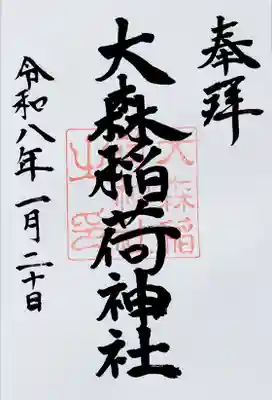 奉拝
大森稲荷神社
令和八年一月二十日
大森稲
荷神社
之印